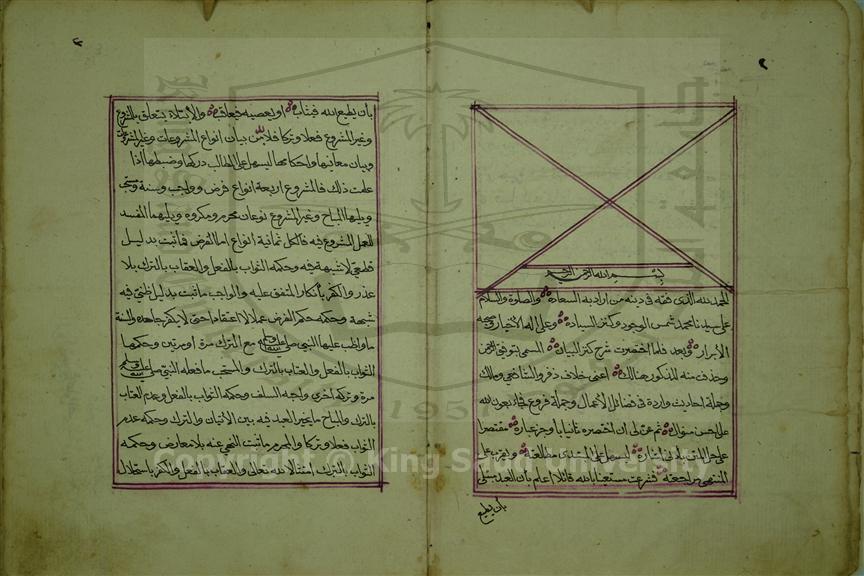 بسم الله الرحمن الرحيم
الحمد لله الذي فقه في دينه من اراد به السعادة والصلوة والسلام
على سيدنا محمد شمس الوجود وكنز السيادة وعلى اله الاخيار وصحبه
الابرار وبعد فلما اختصرت شرح كنز البيان المسمى بتوفيق الرحمن
وحذف منه المذكور هنالك اعني خلاف زفر والشافعي ومالك
وجملة احاديث واردة في فضائل الاعمال وجملة فروع
على حسن ثم عن لي ان اختصره ثانيا باوجز عبارة مقتصرا
على حل المتن ليسهل على المبتدى مطالعته ويقرب على
المنتهى مراجعته فشرعت مستعينا بالله قائلا اعلم بأن العبد مبتلى
بأن يطيع
بأن يطيع الله فيثاب او يعصيه فيعاقب والابتلاء يتعلق بالمشروع
وغير المشروع فعلا وتركا فلابد من بيان انواع المشروعات وغير المشروعات
وبيان معانيها واحكامها ليسهل على الطالب دركها وضبطها اذا
علمت ذلك فالمشروع اربعة انواع فرض وواجب وسنة ومستحب
ويليها المباح وغير المشروع نوعان محرم ومكروه ويليهما المفسد
للعمل المشروع فيه فالكل ثمانية انواع اما الفرض فما ثبت بدليل
قطعي لا شبهة فيه وحكمه الثواب بالفعل والعقاب بالترك بلا
عذر والكفر بأنكار المتفق عليه والواجب ما ثبت بدليل ظني فيه
شبهة وحكمه حكم الفرض عملا لا اعتقادا حتى لا يكفر جاحده والسنة
ما واظب عليها النبي صلى الله عليه وسلم مع الترك مرة او مرتين وحكمها
الثواب بالفعل والعتاب بالترك والمستحب ما فعله النبي صلى الله عليه وسلم
مرة وتركه اخرى واحبه السلف وحكمه الثواب بالفعل وعدم العتاب
بالترك والمباح ما يخير العبد فيه بين الاتيان والترك وحكمه عدم
الثواب فعلا وتركا والمحرم ما ثبت النهي عنه بلا معارض وحكمه
الثواب بالترك امتثالا لله تعالى والعقاب بالفعل والكفر باستحلاله
جامعة الملك
1957
Copyright © King Saud University